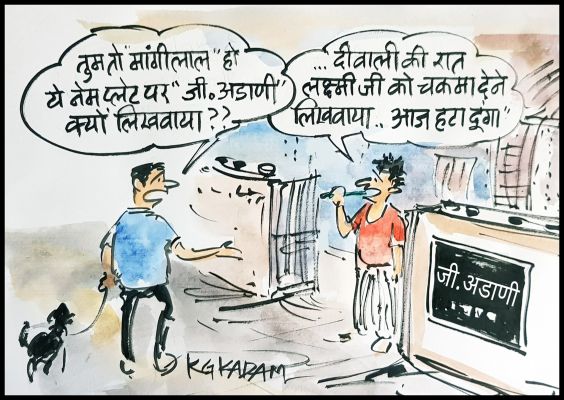 तुम तो "मांगीलाल" हो
ये नेम प्लेट पर "जी. अडाणी"
क्यों लिखवाया ??
... दीवाली की रात
लक्ष्मी जी को चकमा देने
लिखवाया .. आज हटा दूंगा"
जी. अडाणी
KG KADAM